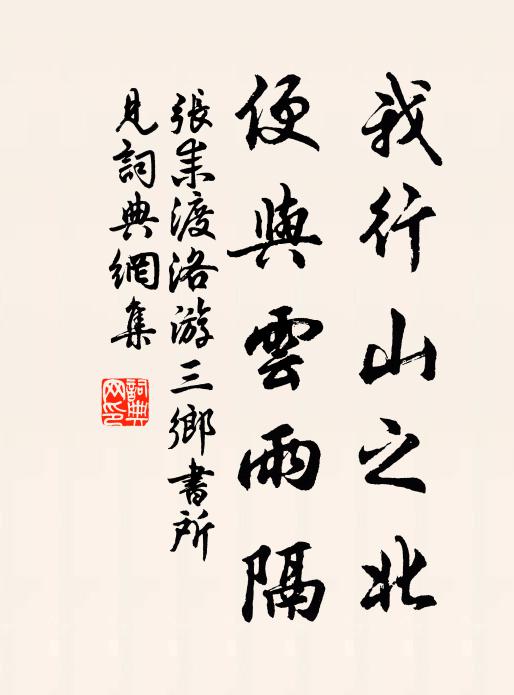 我行山之北
便與雲雨隔
張耒渡洛游三鄉書所
見詞典網集
詞典
网印